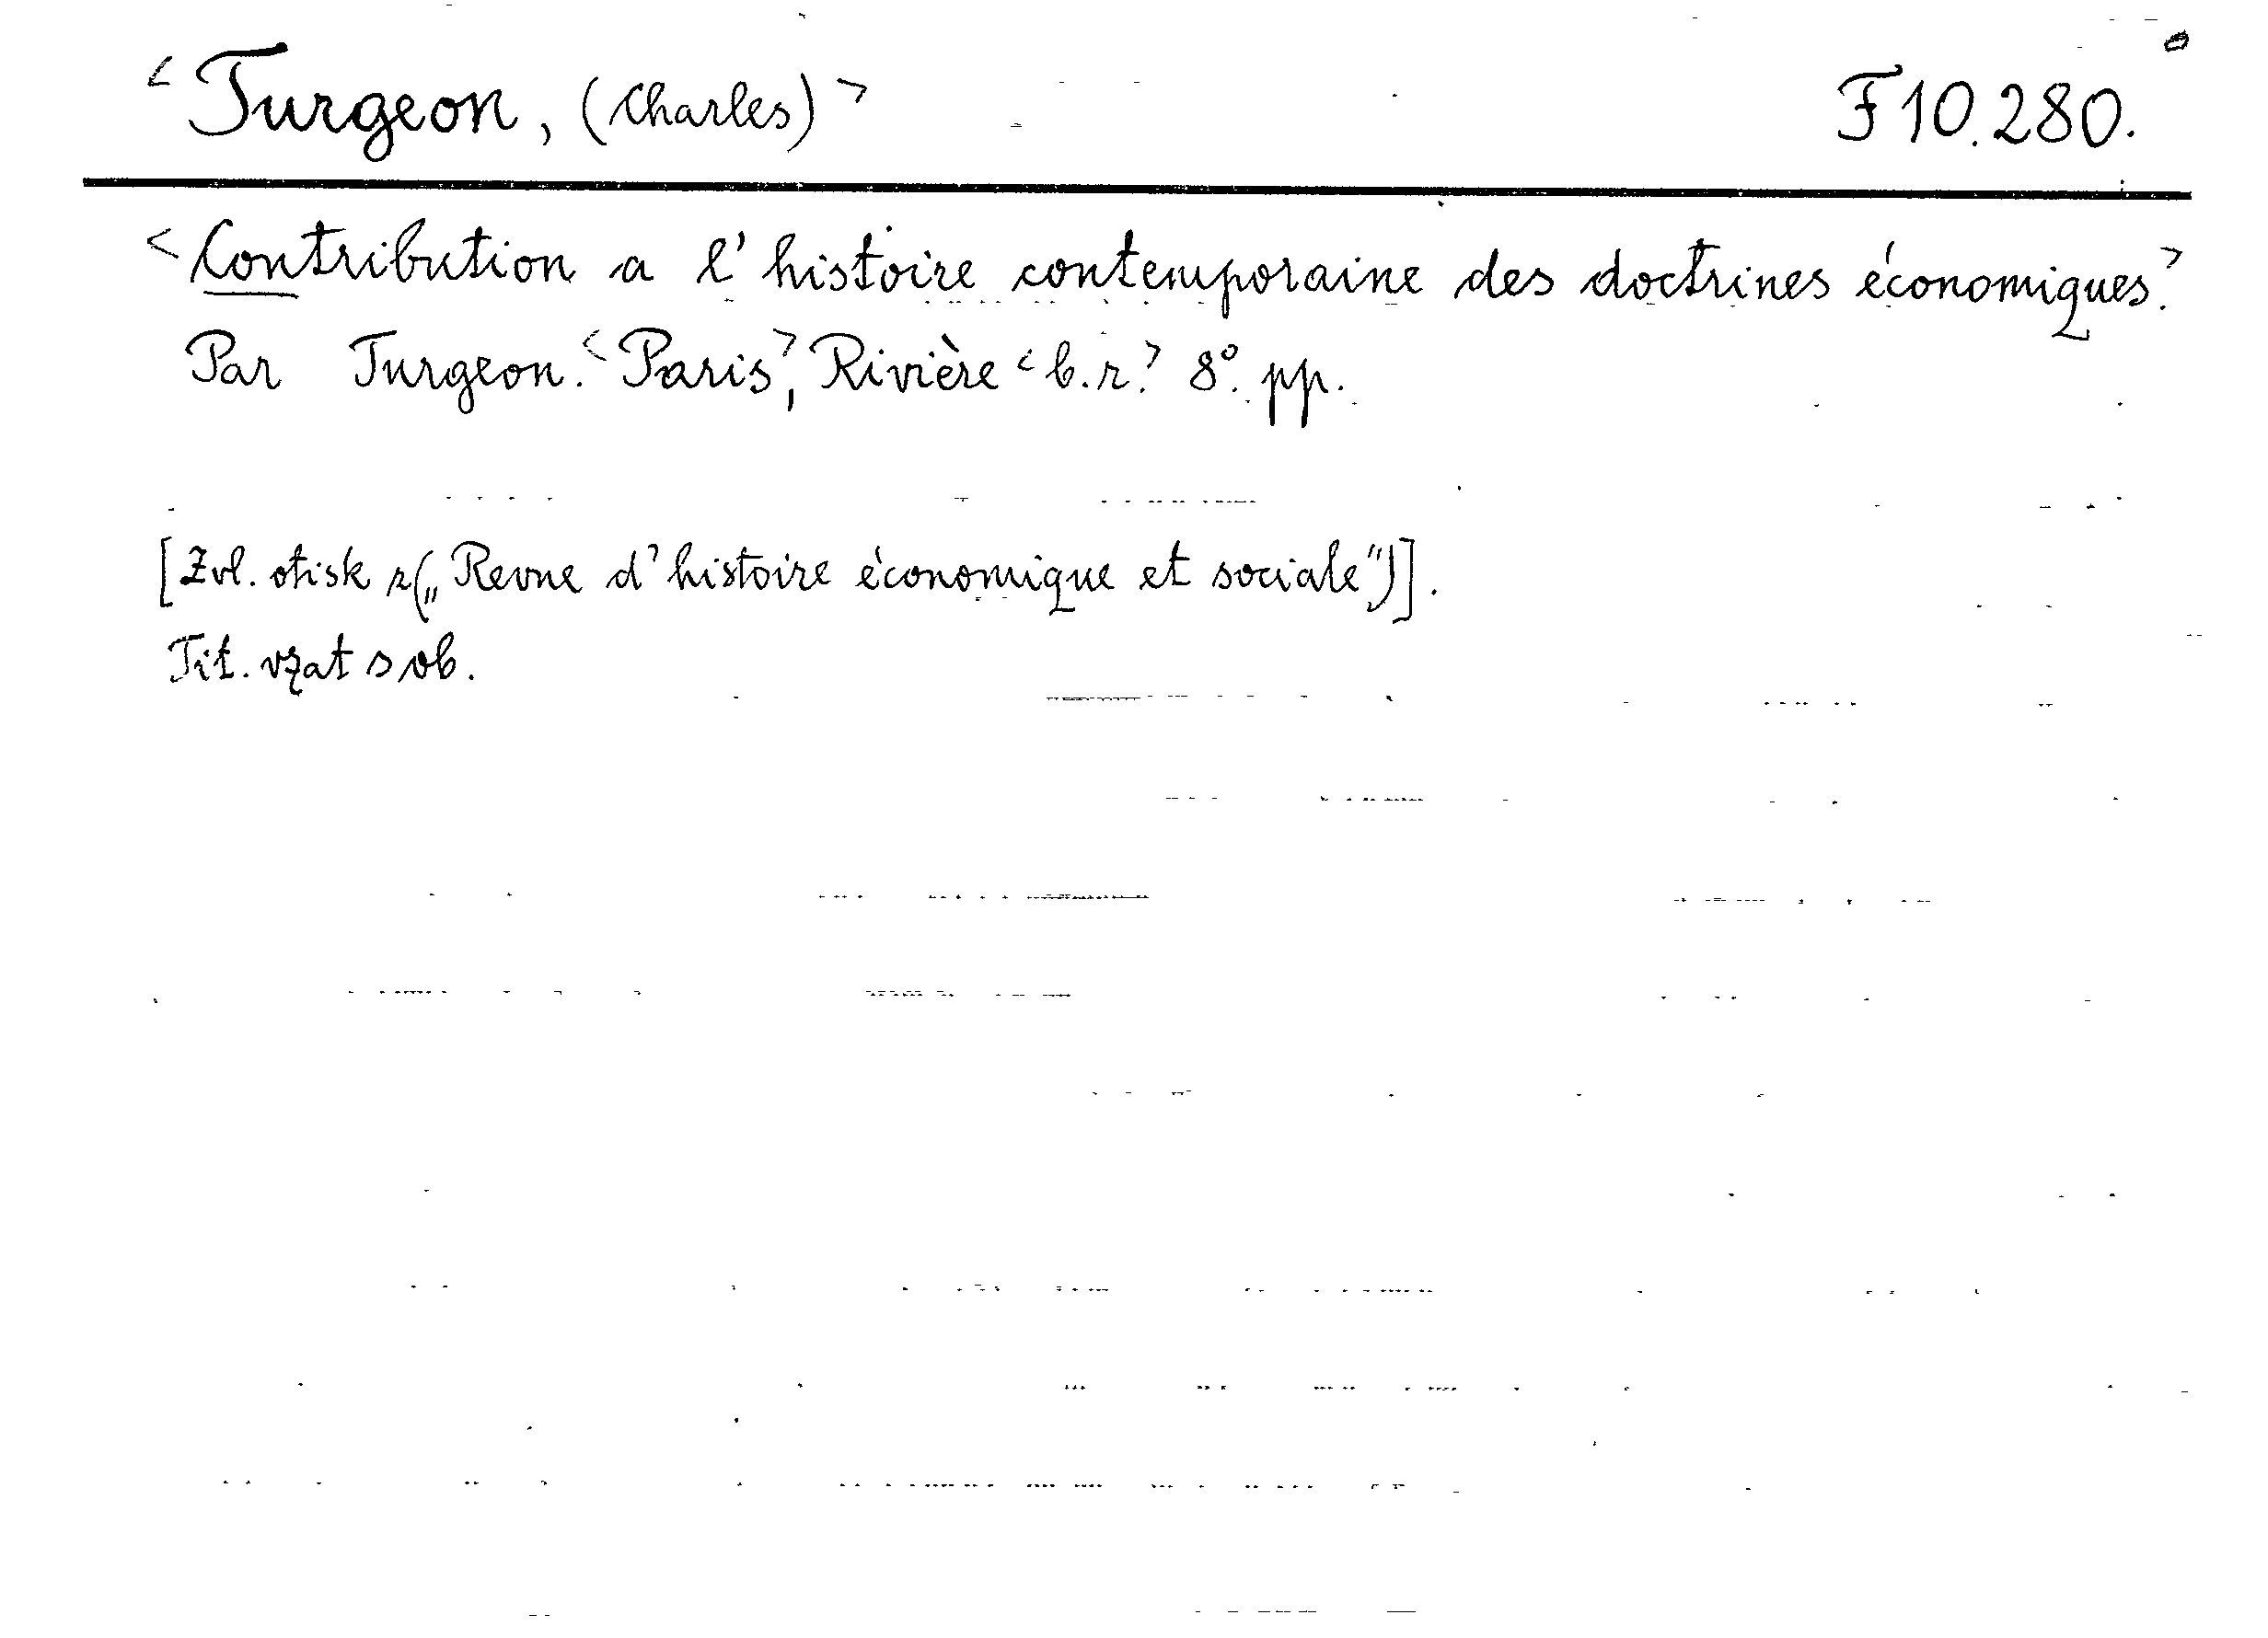 <Turgeon, (Charles)> F 10.280.
<Contribution a l'histoire contemporaine des doctrines économiques.>
Par Turgeon. <Paris>, Rivière <b.r.> 8°. pp.
[Zvl. otisk z („Revue d'histoire économique et sociale")].
Tit. vzat s ob.